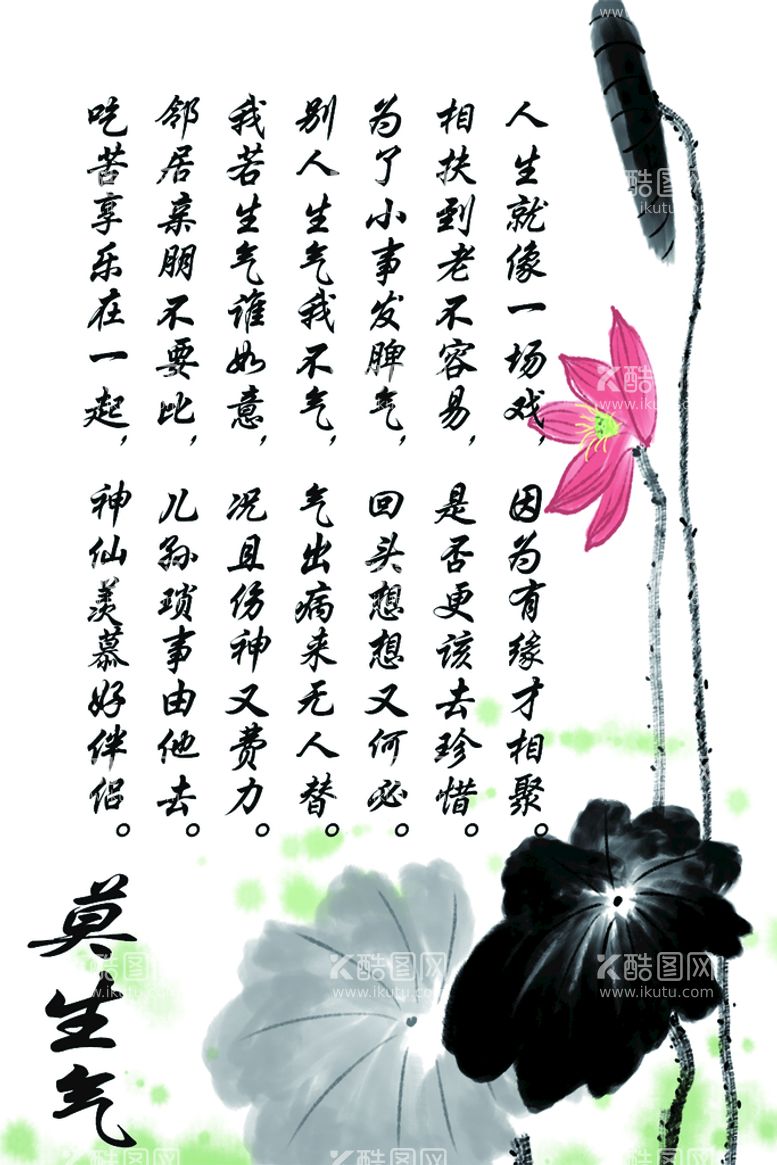 人生就像一场戏，因为有缘才相聚。
相扶到老不容易，是否更该去珍惜。
为了小事发脾气，回头想想又何必。
别人生气我不气，气出病来无人替。
我若生气谁如意，况且伤神又费力。
邻居亲朋不要比，儿孙琐事由他去。
吃苦享乐在一起，神仙羡慕好伴侣。
莫生气
酷图网
www.ikutu.com